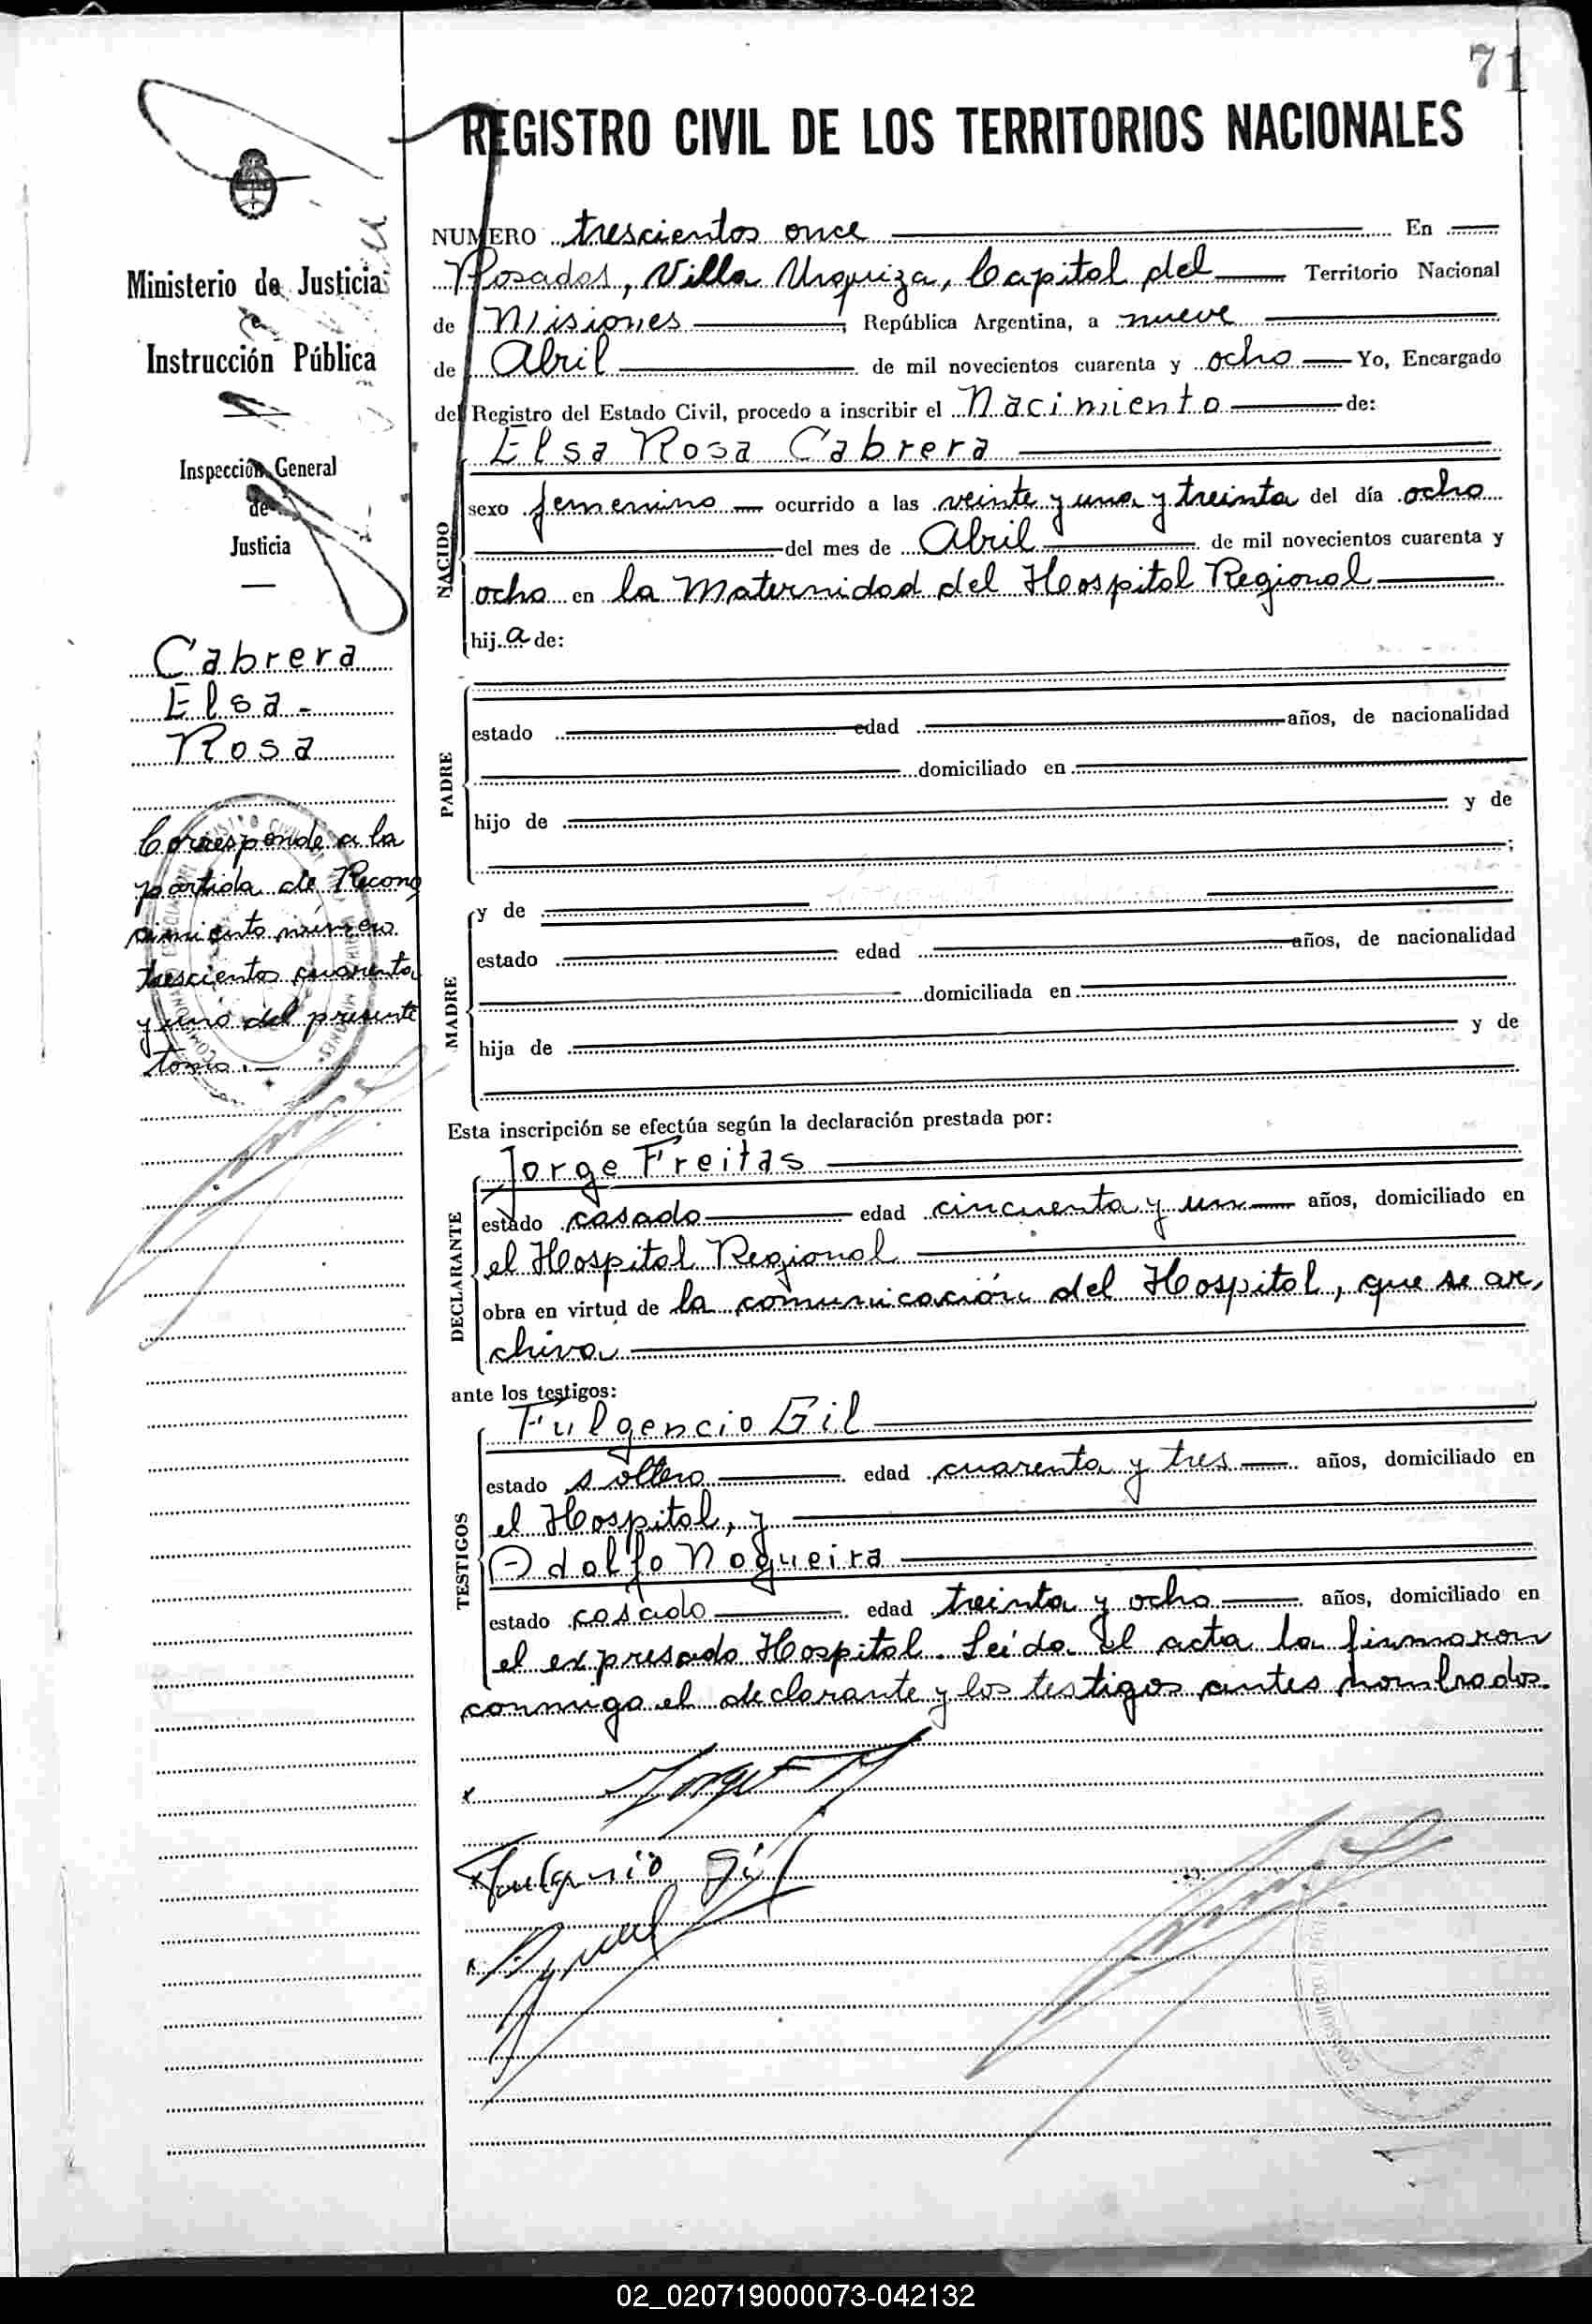 71
REGISTRO CIVIL DE LOS TERRITORIOS NACIONALES
Ministerio de Justicia
e
Instrucción Pública
Inspección General
de
Justicia
Cabrera
Elsa -
Rosa
Corresponde a la
partida de Recono
cimiento número
trescientos cuarenta
y uno del presente
tomo.-
NUMERO trescientos once En
Posadas, Villa Urquiza, Capital del Territorio Nacional
de Misiones, República Argentina, a nueve
de Abril de mil novecientos cuarenta y ocho Yo, Encargado
del Registro del Estado Civil, procedo a inscribir el Nacimiento de:
NACIDO
Elsa Rosa Cabrera
sexo femenino ocurrido a las veinte y una y treinta del día ocho
del mes de Abril de mil novecientos cuarenta y
ocho en la Maternidad del Hospital Regional
hija de:
PADRE
estado edad años, de nacionalidad
domiciliado en
hijo de y de
;
MADRE
y de
estado edad años, de nacionalidad
domiciliada en
hija de y de
Esta inscripción se efectúa según la declaración prestada por:
DECLARANTE
Jorge Freitas
estado casado edad cincuenta y un años, domiciliado en
el Hospital Regional
obra en virtud de la comunicación del Hospital, que se ar,
chiva
ante los testigos:
TESTIGOS
Fulgencio Gil
estado soltero edad cuarenta y tres años, domiciliado en
el Hospital, y
Adolfo Nogueira
estado casado edad treinta y ocho años, domiciliado en
el expresado Hospital. Leída el acta la firmaron
conmigo el declarante y los testigos antes nombrados.
Fulgencio Gil
02_020719000073-042132